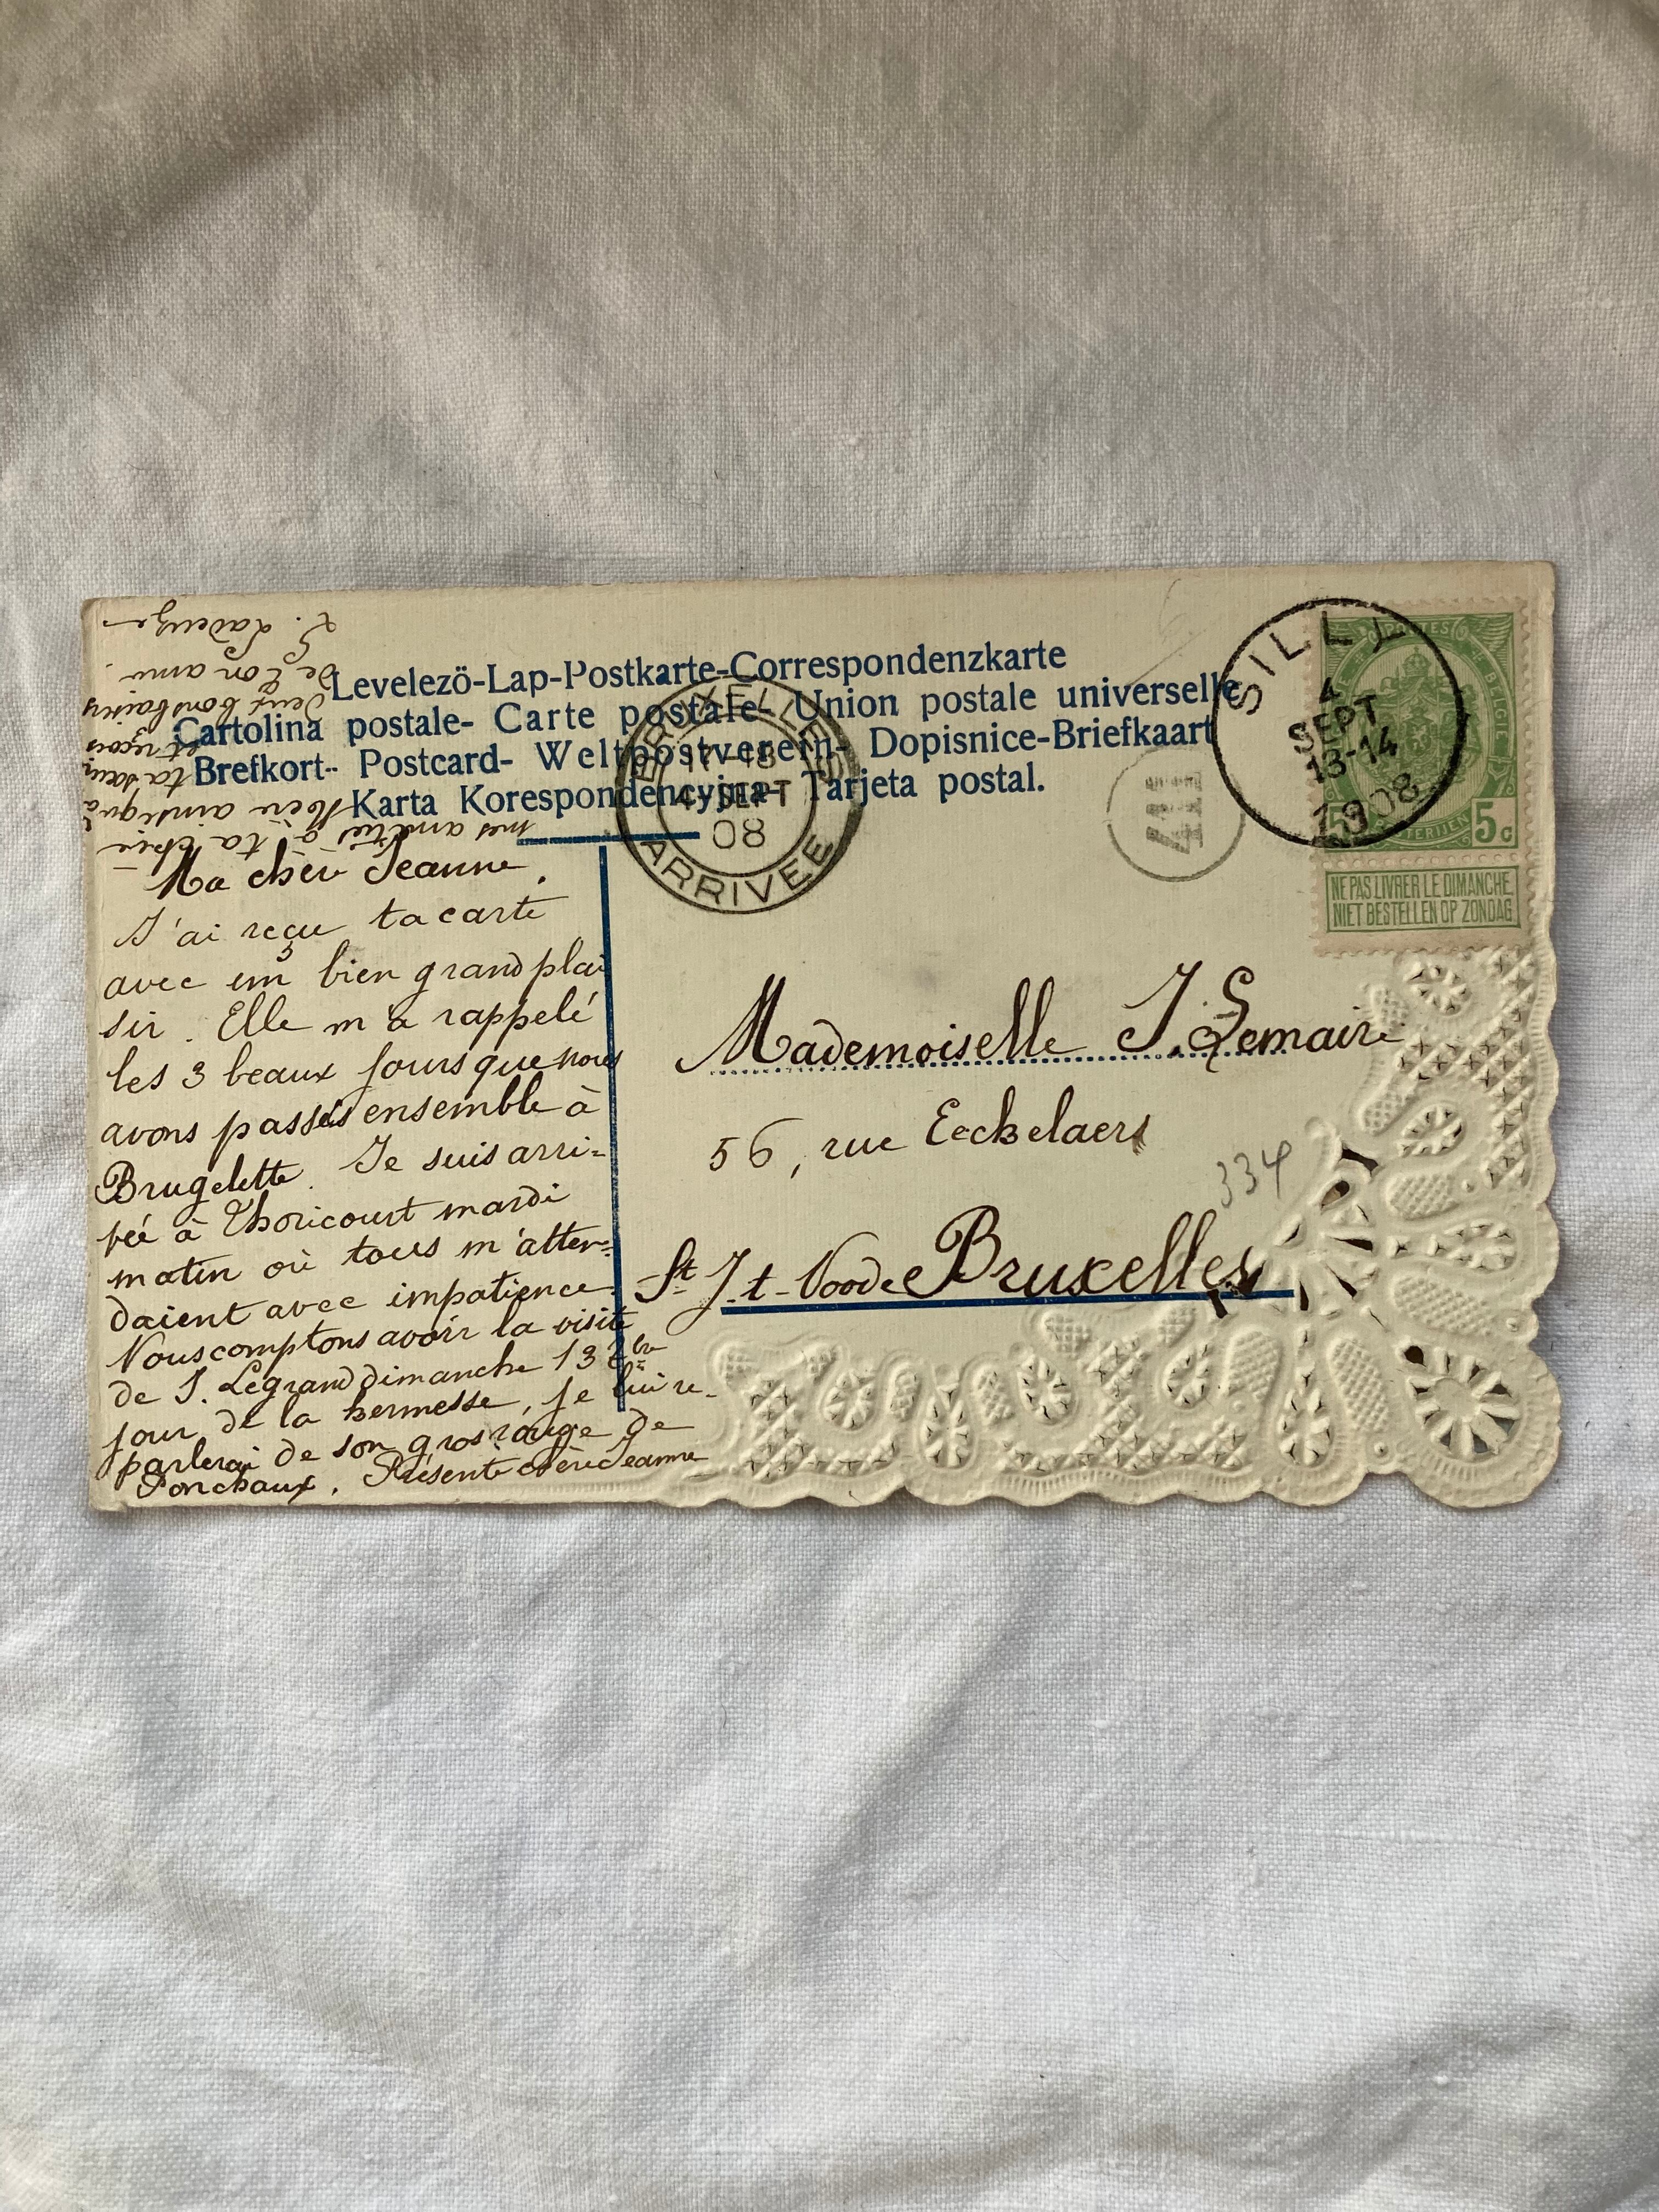 Levelező-Lap-Postkarte-Correspondenzkarte
Cartolina postale- Carte postale- Union postale universelle
Brefkort- Postcard- Weltpostverein- Dopisnice-Briefkaart
Karta Korespondencyjna- Tarjeta postal.
BRUXELLES
17-18
4 SEPT
08
ARRIVÉE
SILLY
4
SEPT
13-14
1908
POSTES
BELGIE
5c
NE PAS LIVRER LE DIMANCHE
NIET BESTELLEN OP ZONDAG
Ma chère Jeanne,
J'ai reçu ta carte
avec un bien grand plai
sir. Elle m'a rappelé
les 3 beaux jours que nous
avons passés ensemble à
Brugelette. Je suis arri=
vée à Thoricourt mardi
matin où tous m'atten=
daient avec impatience.
Nous comptons avoir la visite
de J. Legrand dimanche 13 7bre
jour de la kermesse, je lui re-
parlerai de son gros rouge de
Ponchaux. Présente chère Jeanne
mes amitiés à ta chère
Mère ainsi qu'à
ta sœur
et reçois
deux bons baisers
de ton amie.
L. Ladeuze
Mademoiselle J. Lemaire
56, rue Eeckelaers
St J. t. Noode Bruxelles
334